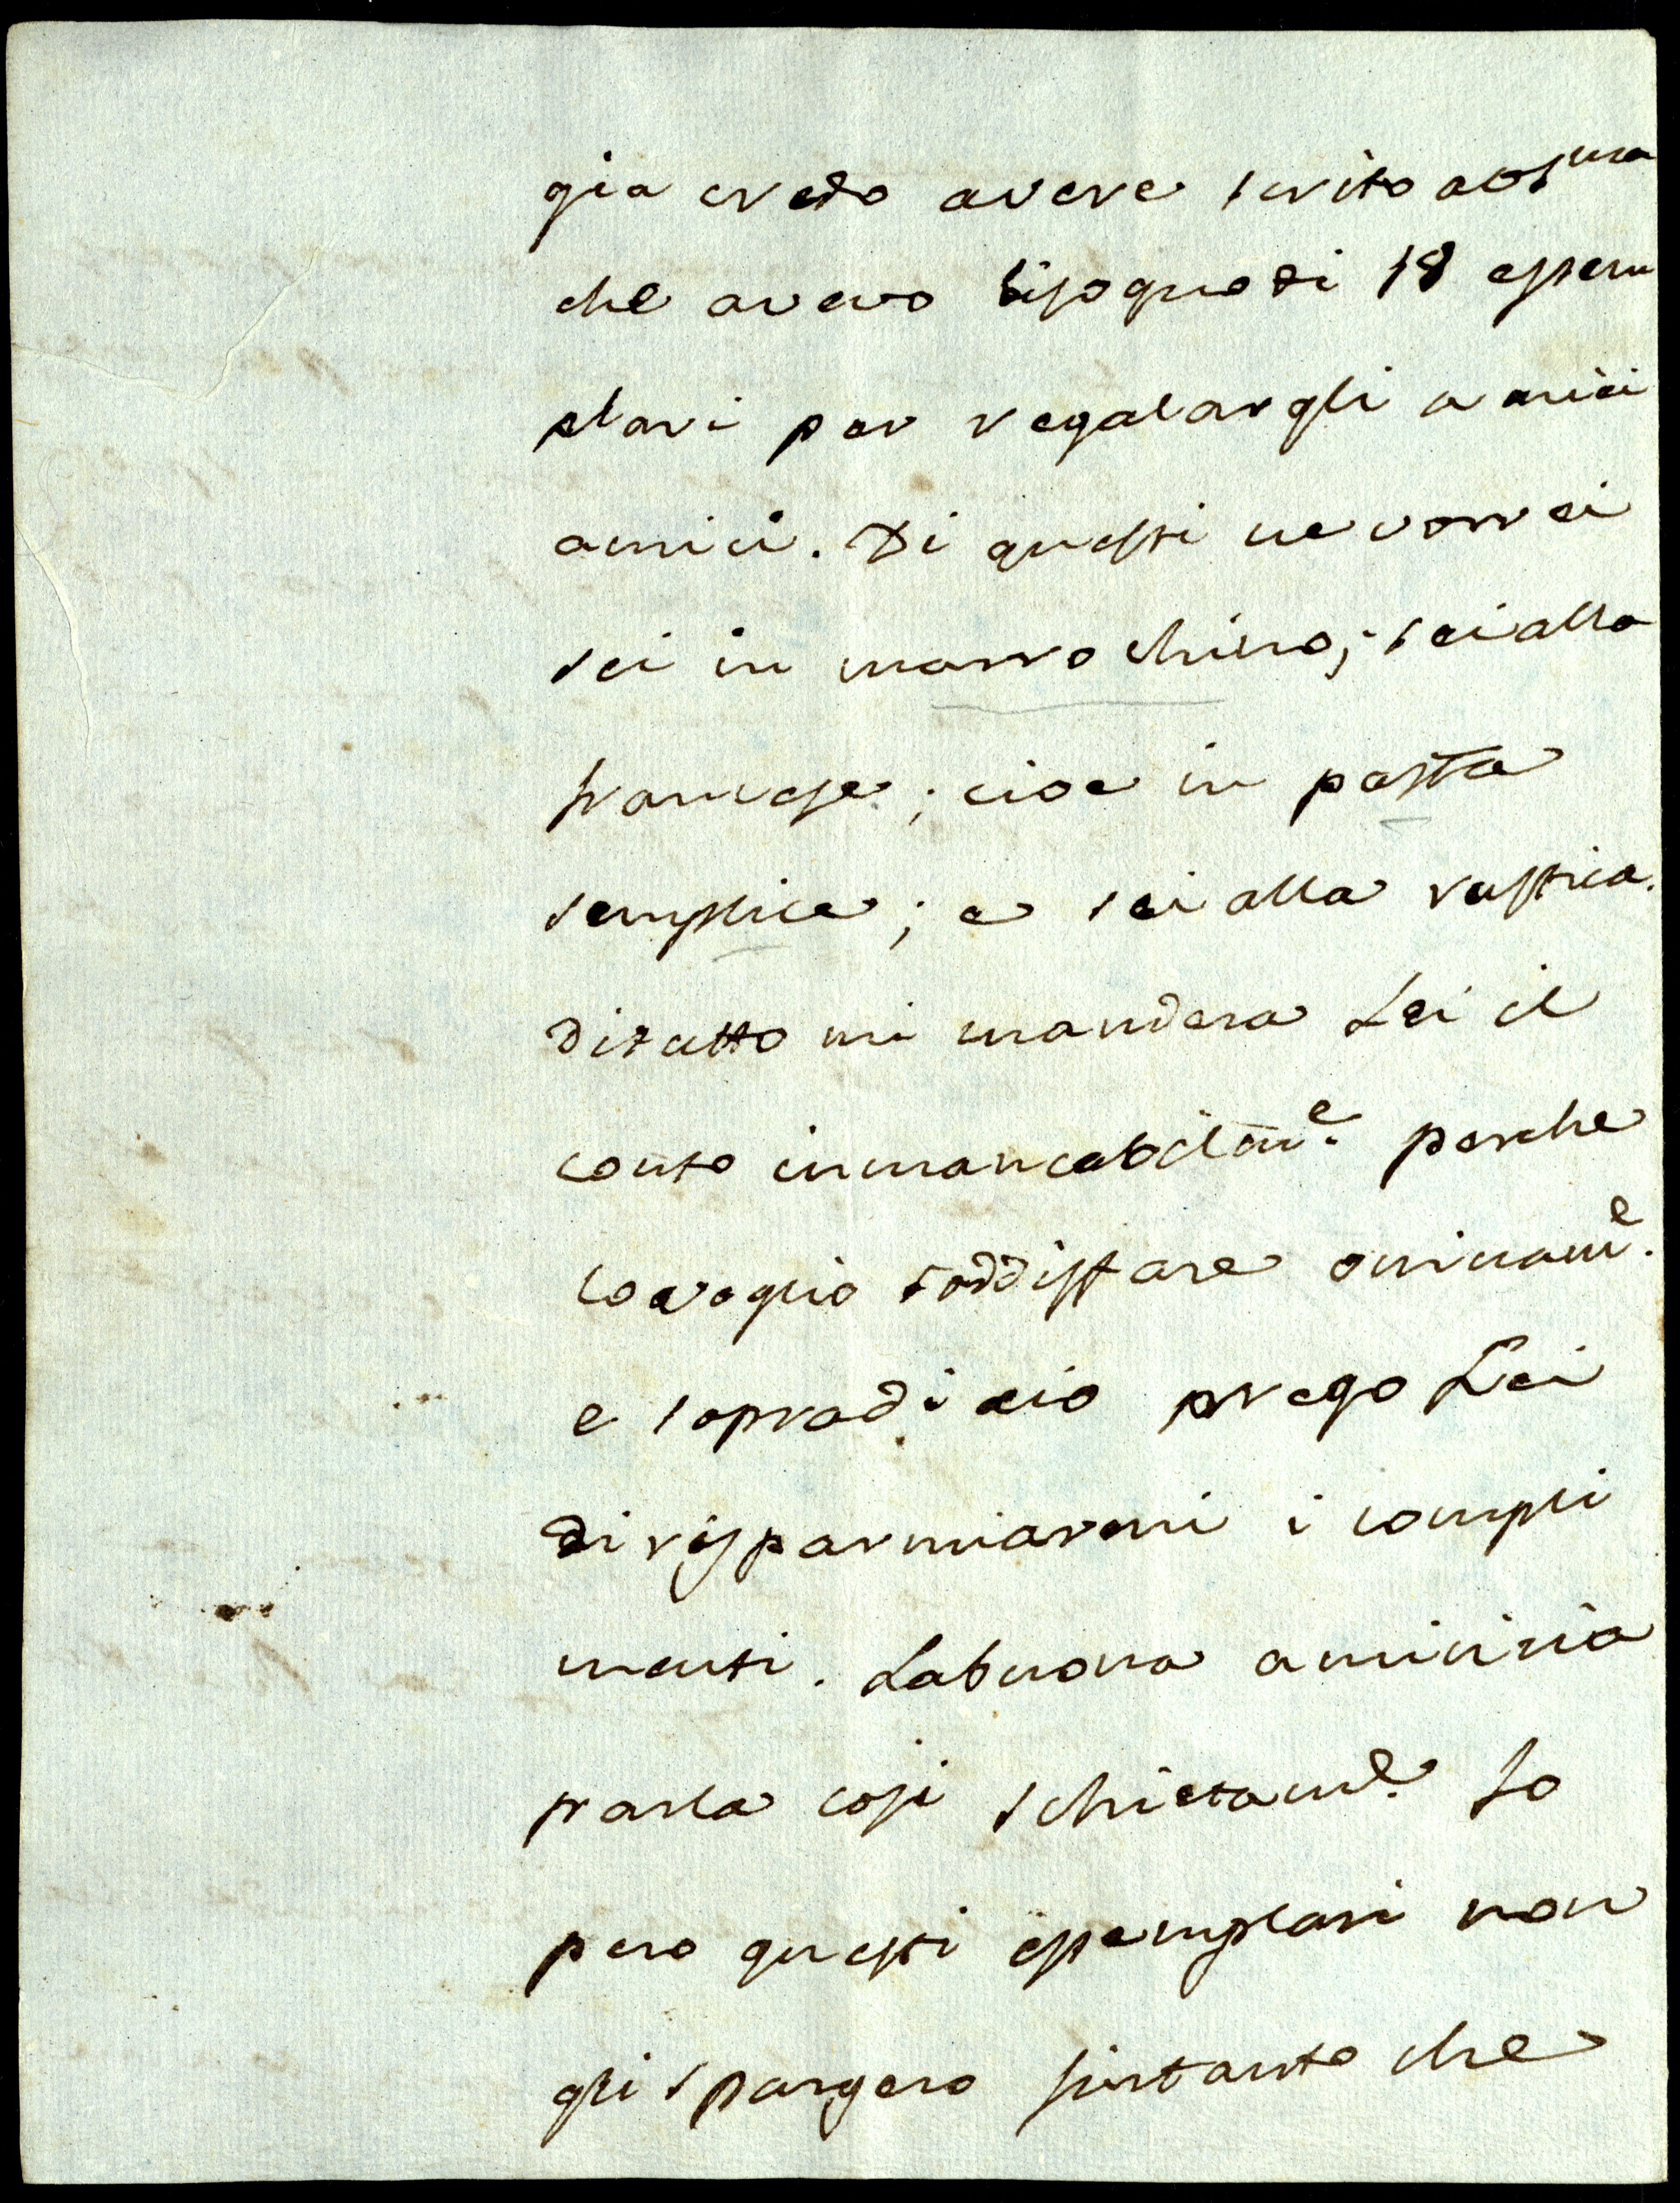 gia credo avere scrito a VS.ma
che avevo bisogno di 18 essem
plari per regalargli a miei
amici. Di questi ne vorrei
sei in marrochino; sei alla
francese; cioe in pasta
semplice; e sei alla rustica.
di tutto mi mandera Lei il
conto inmancabilm.e perche
lo voglio soddisfare oninam.e
e sopra di cio prego Lei
di risparmiarmi i compli
menti. La buona amicizia
parla cosi schietam.e Io
pero questi essemplari non
gli spargero sintanto che